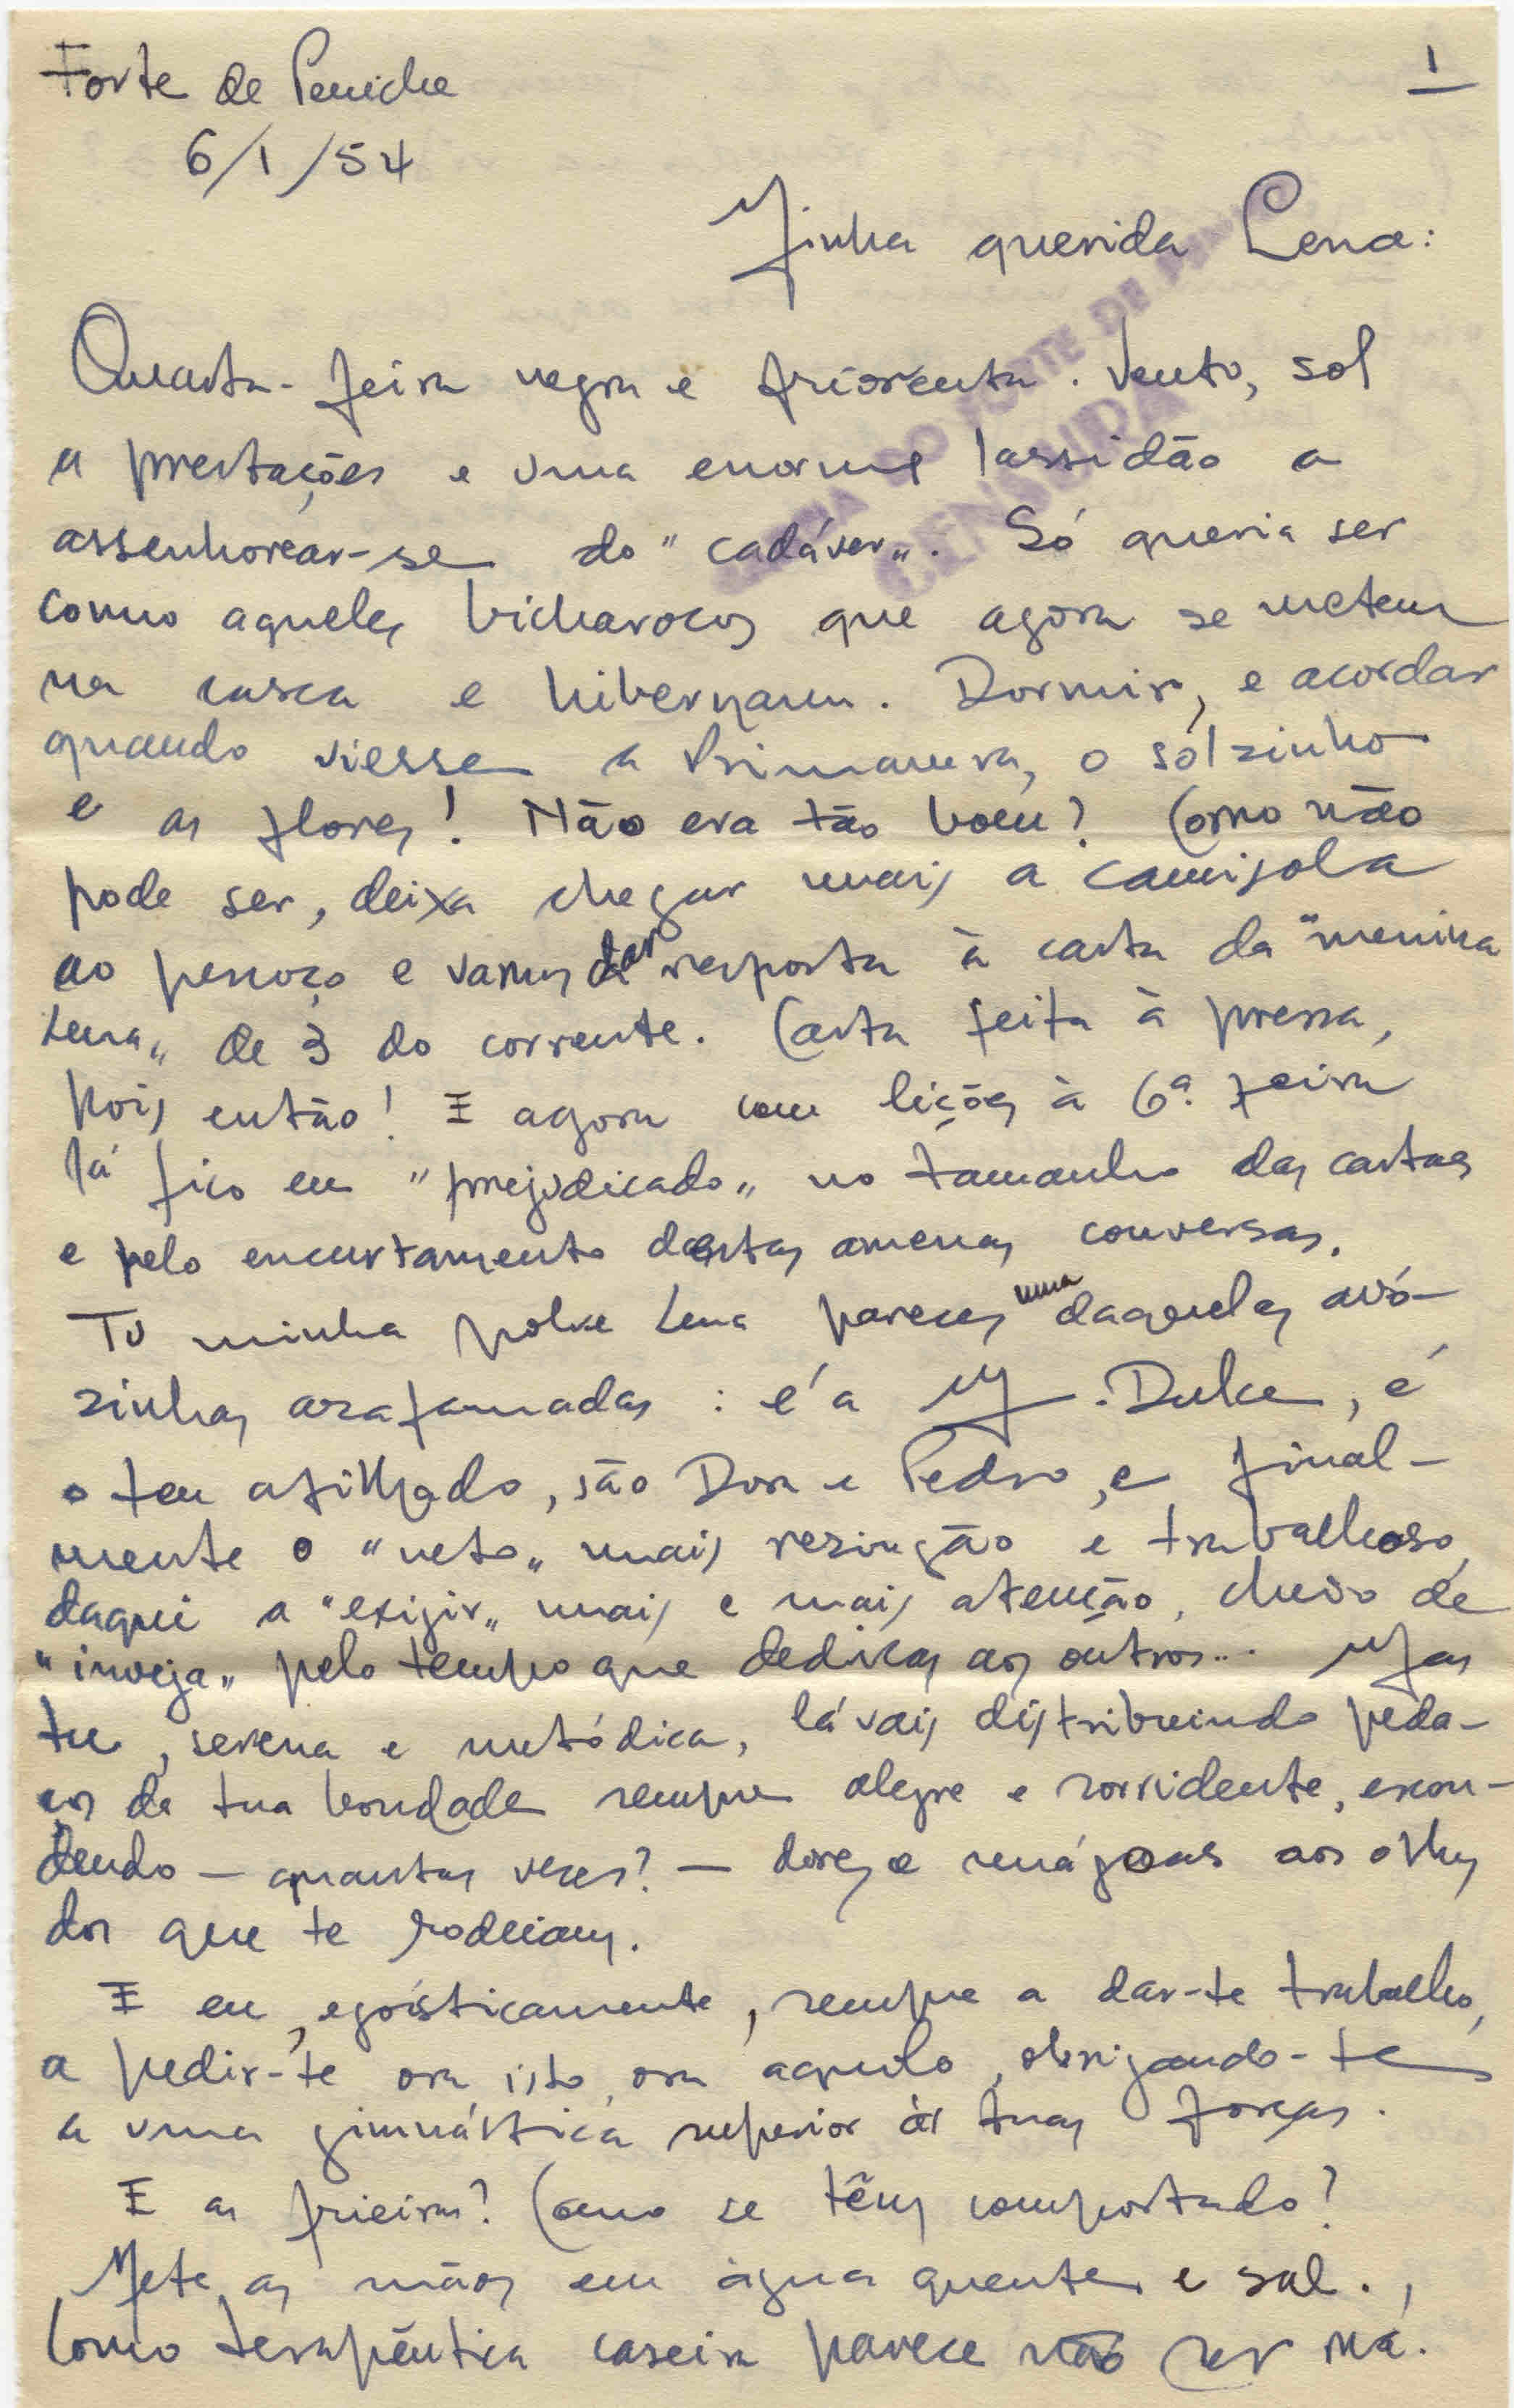 Forte de Peniche
1
6/1/54
Minha querida Lena:
Quarta-feira negra e friorenta. Vento, sol
a prestações e uma enorme lassidão a
assenhorear-se do "cadáver". Só queria ser
como aqueles bicharocos que agora se metem
na casca e hibernam. Dormir, e acordar
quando viesse a Primavera, o sòlzinho
e as flores! Não era tão bom? Como não
pode ser, deixa chegar mais a camisola
ao pescoço e vamos dar resposta à carta da "menina
Lena" de 3 do corrente. Carta feita à pressa,
pois então! E agora com lições à 6ª. feira
lá fico eu "prejudicado" no tamanho das cartas
e pelo encurtamento destas amenas conversas.
Tu minha pobre Lena pareces uma daquelas avó-
zinhas azafamadas: é a M. Dulce, é
o teu afilhado, são Dora e Pedro, e final-
mente o "neto" mais rezingão e trabalhoso,
daqui a "exigir" mais e mais atenção, cheio de
"inveja" pelo tempo que dedicas aos outros... Mas
tu, serena e metódica, lá vais distribuindo peda-
ços da tua bondade sempre alegre e sorridente, escon-
dendo — quantas vezes? — dores e mágoas aos olhos
dos que te rodeiam.
E eu, egoìsticamente, sempre a dar-te trabalho,
a pedir-te ora isto, ora aquilo, obrigando-te
a uma ginástica superior às tuas forças.
E as frieiras? Como se têm comportado?
Mete as mãos em água quente e sal.,
Como terapêutica caseira parece não ser má.
FORTE DE
CENSURA